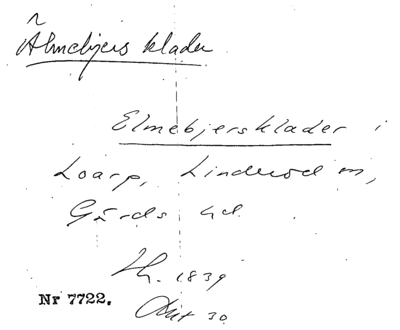 Älmebjers klader
Elmebjersklader i
Loarp, Linderöd sn,
Gärds hd.
Lh. 1839
Nr 7722. Akt 30